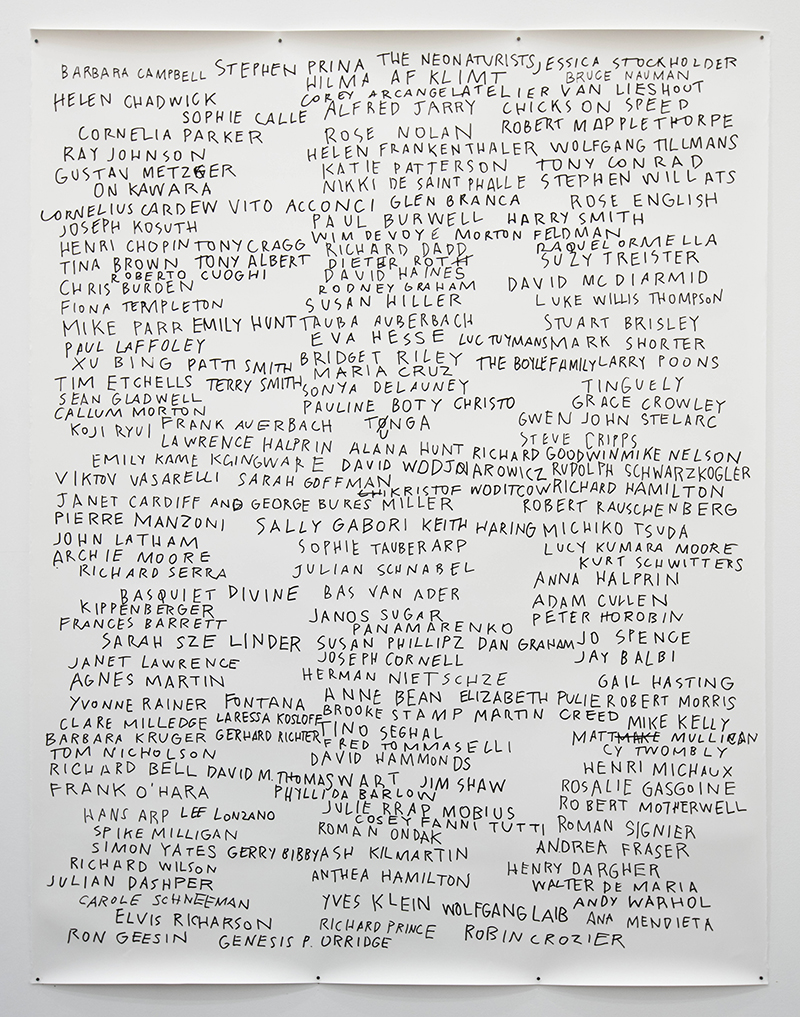 BARBARA CAMPBELL STEPHEN PRINA THE NEONATURISTS JESSICA STOCKHOLDER
HILMA AF KLIMT BRUCE NAUMAN
HELEN CHADWICK COREY ARCANGEL ATELIER VAN LIESHOUT
SOPHIE CALLE ALFRED JARRY CHICKS ON SPEED
CORNELIA PARKER ROSE NOLAN ROBERT MAPPLETHORPE
RAY JOHNSON HELEN FRANKENTHALER WOLFGANG TILLMANS
GUSTAV METZGER KATIE PATTERSON TONY CONRAD
ON KAWARA NIKKI DE SAINT PHALLE STEPHEN WILLATS
CORNELIUS CARDEW VITO ACCONCI GLEN BRANCA ROSE ENGLISH
JOSEPH KOSUTH PAUL BURWELL HARRY SMITH
WIM DEVOYE MORTON FELDMAN
HENRI CHOPIN TONY CRAGG RICHARD DADD RAQUEL ORMELLA
TINA BROWN TONY ALBERT DIETER ROTH SUZY TREISTER
ROBERTO CUOGHI DAVID HAINES
CHRIS BURDEN RODNEY GRAHAM DAVID MCDIARMID
FIONA TEMPLETON SUSAN HILLER LUKE WILLIS THOMPSON
MIKE PARR EMILY HUNT TAUBA AUBERBACH STUART BRISLEY
PAUL LAFFOLEY EVA HESSE LUC TUYMANS MARK SHORTER
XU BING PATTI SMITH BRIDGET RILEY THE BOYLE FAMILY LARRY POONS
MARIA CRUZ
TIM ETCHELLS TERRY SMITH SONYA DELAUNEY TINGUELY
SEAN GLADWELL PAULINE BOTY CHRISTO GRACE CROWLEY
CALLUM MORTON
KOJI RYUI FRANK AUERBACH TONGA GWEN JOHN STELARC
LAWRENCE HALPRIN ALANA HUNT STEVE CRIPPS
RICHARD GOODWIN MIKE NELSON
EMILY KAME KGINGWARE DAVID WODJONAROWICZ RUDOLPH SCHWARZKOGLER
VIKTOV VASARELLI SARAH GOFFMAN KRISTOF WODITCOW RICHARD HAMILTON
JANET CARDIFF AND GEORGE BURES MILLER ROBERT RAUSCHENBERG
PIERRE MANZONI SALLY GABORI KEITH HARING MICHIKO TSUDA
JOHN LATHAM SOPHIE TAUBER ARP LUCY KUMARA MOORE
ARCHIE MOORE KURT SCHWITTERS
RICHARD SERRA JULIAN SCHNABEL ANNA HALPRIN
BASQUIET DIVINE BAS VAN ADER ADAM CULLEN
KIPPENBERGER JANOS SUGAR PETER HOROBIN
FRANCES BARRETT PANAMARENKO
SARAH SZE LINDER SUSAN PHILLIPZ DAN GRAHAM JO SPENCE
JANET LAWRENCE JOSEPH CORNELL JAY BALBI
AGNES MARTIN HERMAN NIETSCHZE GAIL HASTING
YVONNE RAINER FONTANA ANNE BEAN ELIZABETH PULIE ROBERT MORRIS
CLARE MILLEDGE LARESSA KOSLOFF BROOKE STAMP MARTIN CREED MIKE KELLY
BARBARA KRUGER GERHARD RICHTER TINO SEGHAL MATT MAKE MULLICAN
TOM NICHOLSON FRED TOMMASELLI CY TWOMBLY
DAVID HAMMONDS
RICHARD BELL DAVID M. THOMAS WART JIM SHAW HENRI MICHAUX
FRANK O'HARA PHYLLIDA BARLOW ROSALIE GASGOINE
JULIE RRAP MOBIUS ROBERT MOTHERWELL
HANS ARP LEE LONZANO COSEY FANNI TUTTI ROMAN SIGNIER
SPIKE MILLIGAN ROMAN ONDAK
SIMON YATES GERRY BIBBY ASH KILMARTIN ANDREA FRASER
RICHARD WILSON ANTHEA HAMILTON HENRY DARGHER
JULIAN DASHPER WALTER DE MARIA
CAROLE SCHNEEMAN YVES KLEIN WOLFGANG LAIB ANDY WARHOL
ELVIS RICHARSON RICHARD PRINCE ANA MENDIETA
RON GEESIN GENESIS P. ORRIDGE ROBIN CROZIER